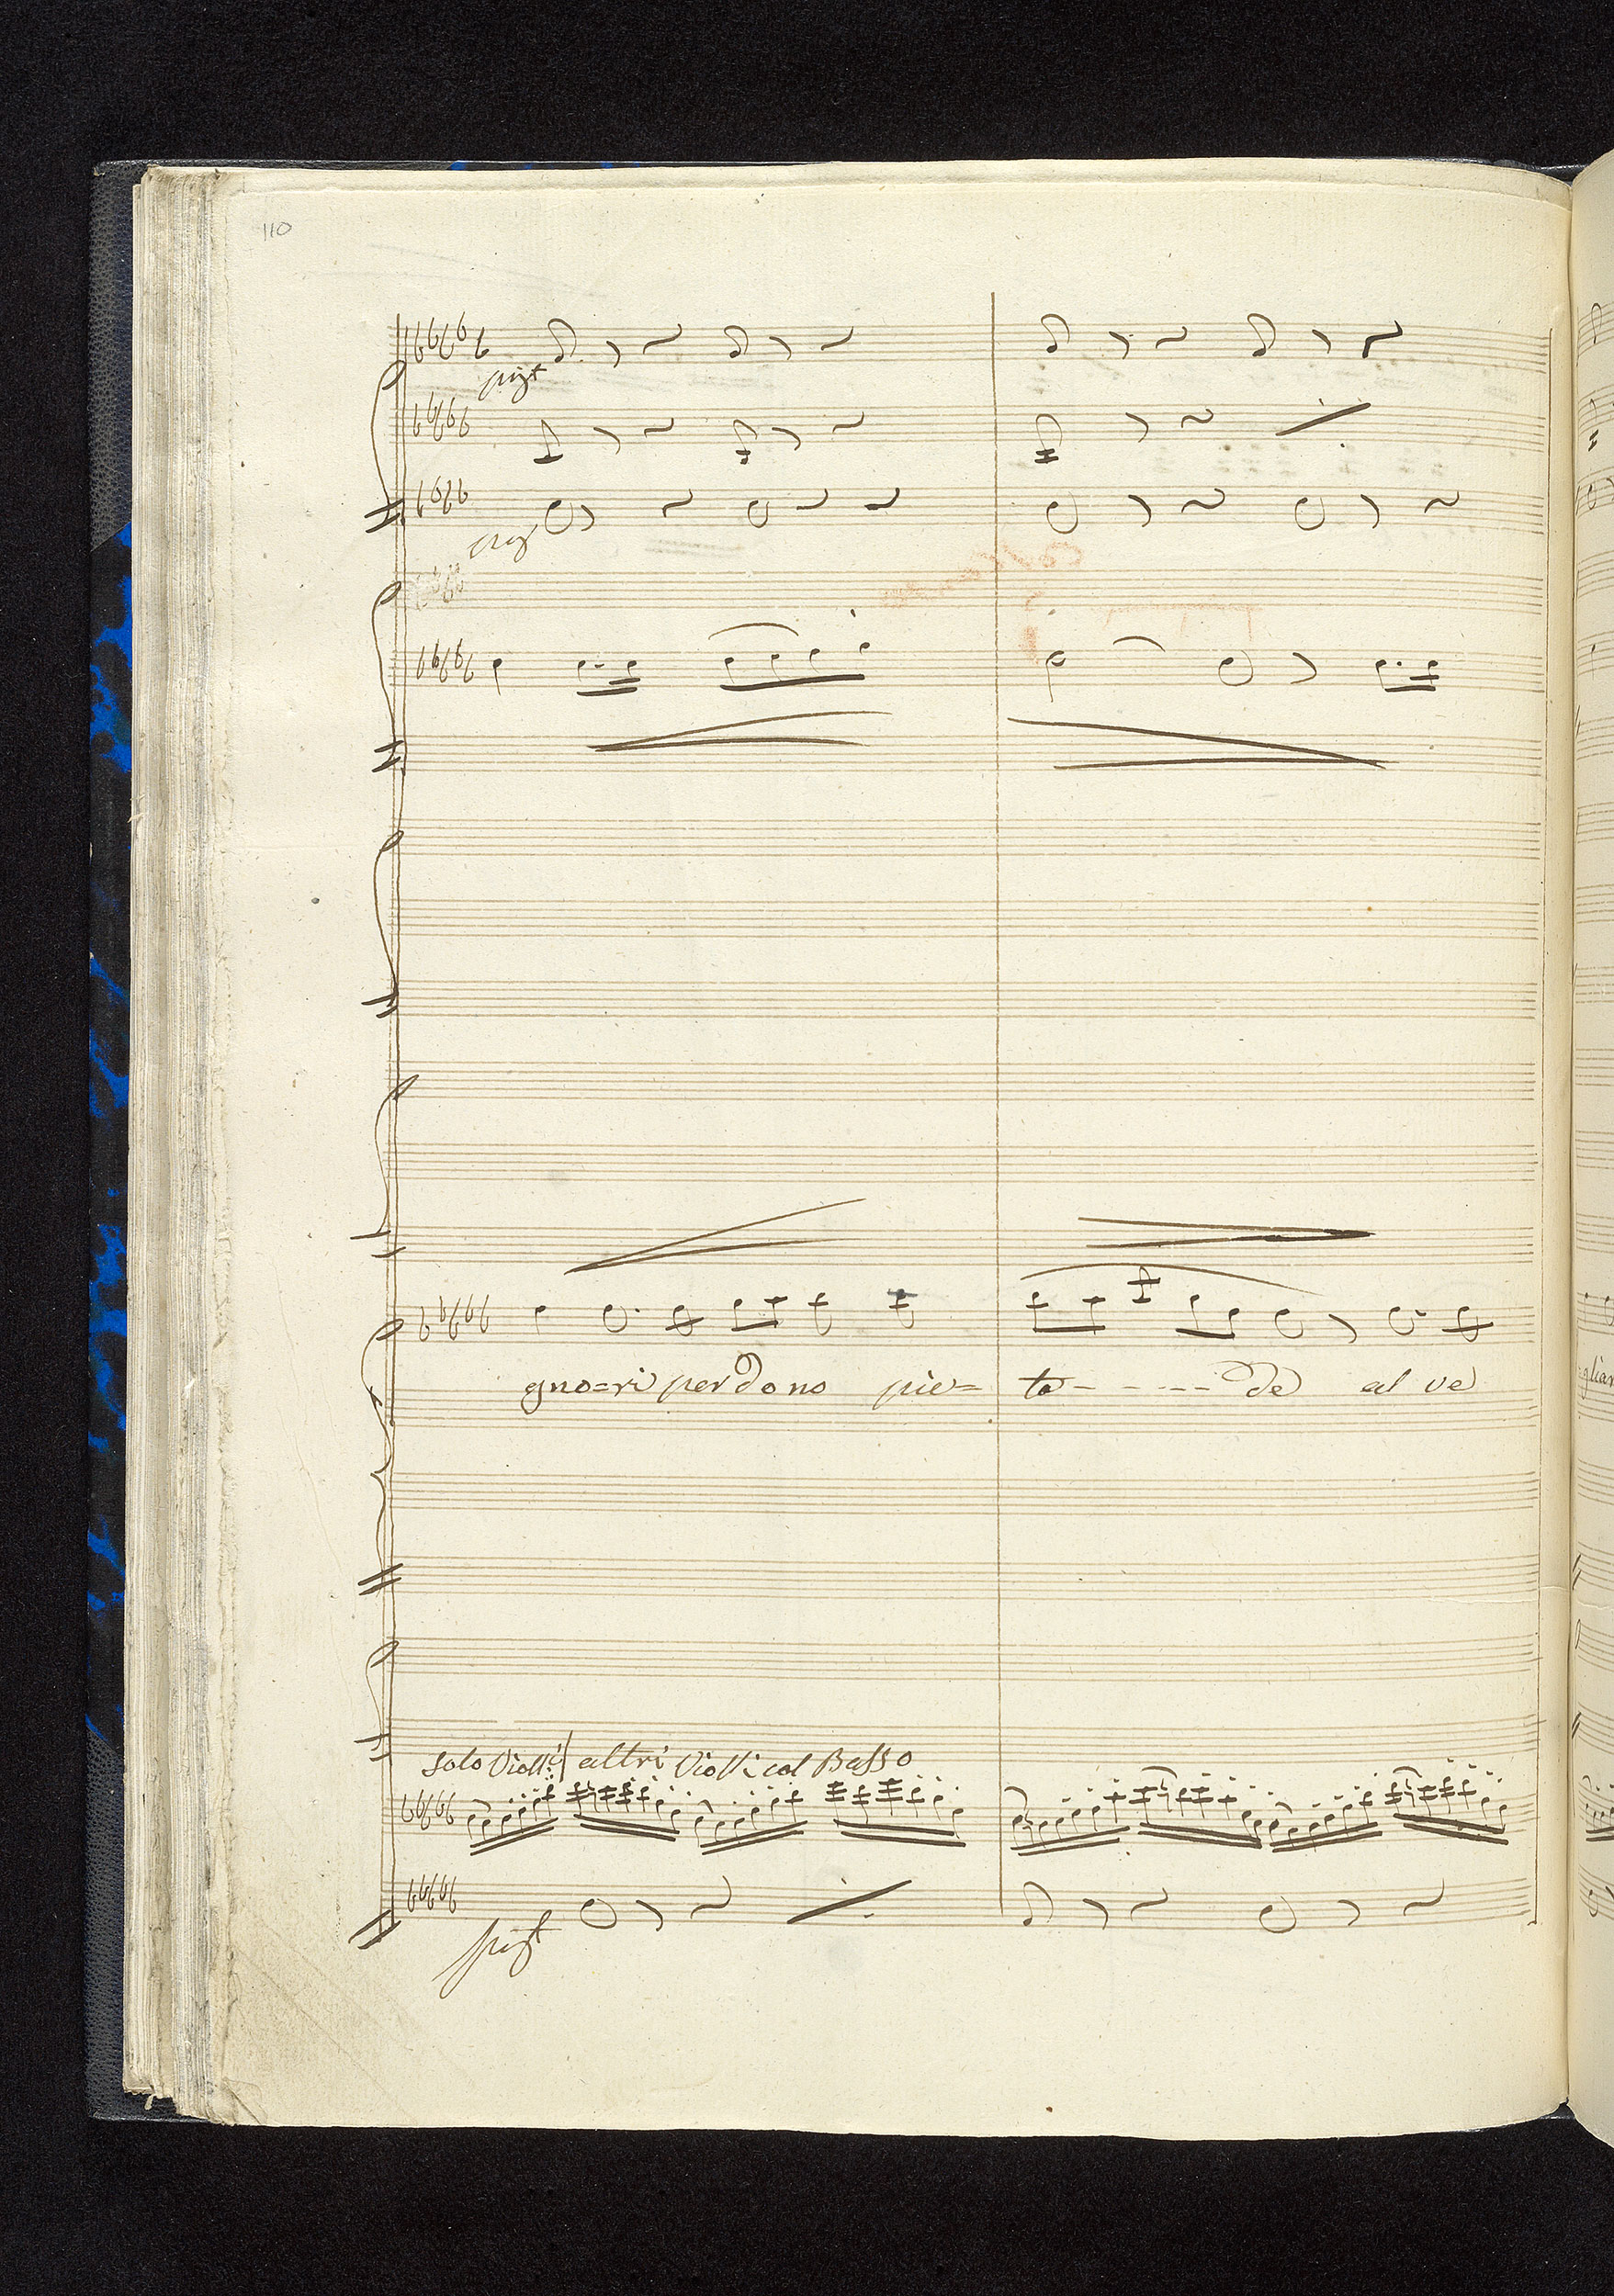 110
pizt
piz
gno=ri perdono pie= ta- - - - - de al ve
Solo Violli altri Violli col Basso
pizt